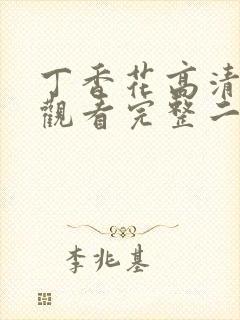 丁香花高清
觀看完整二
李兆基